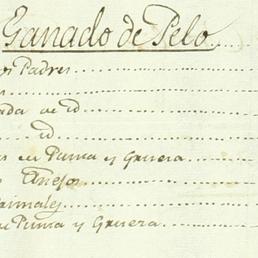 Ganado de Pelo
os Padres
s
ada de id
id
s en Puma y Gruera
s Añejos
rimales
en Puma y Gruera